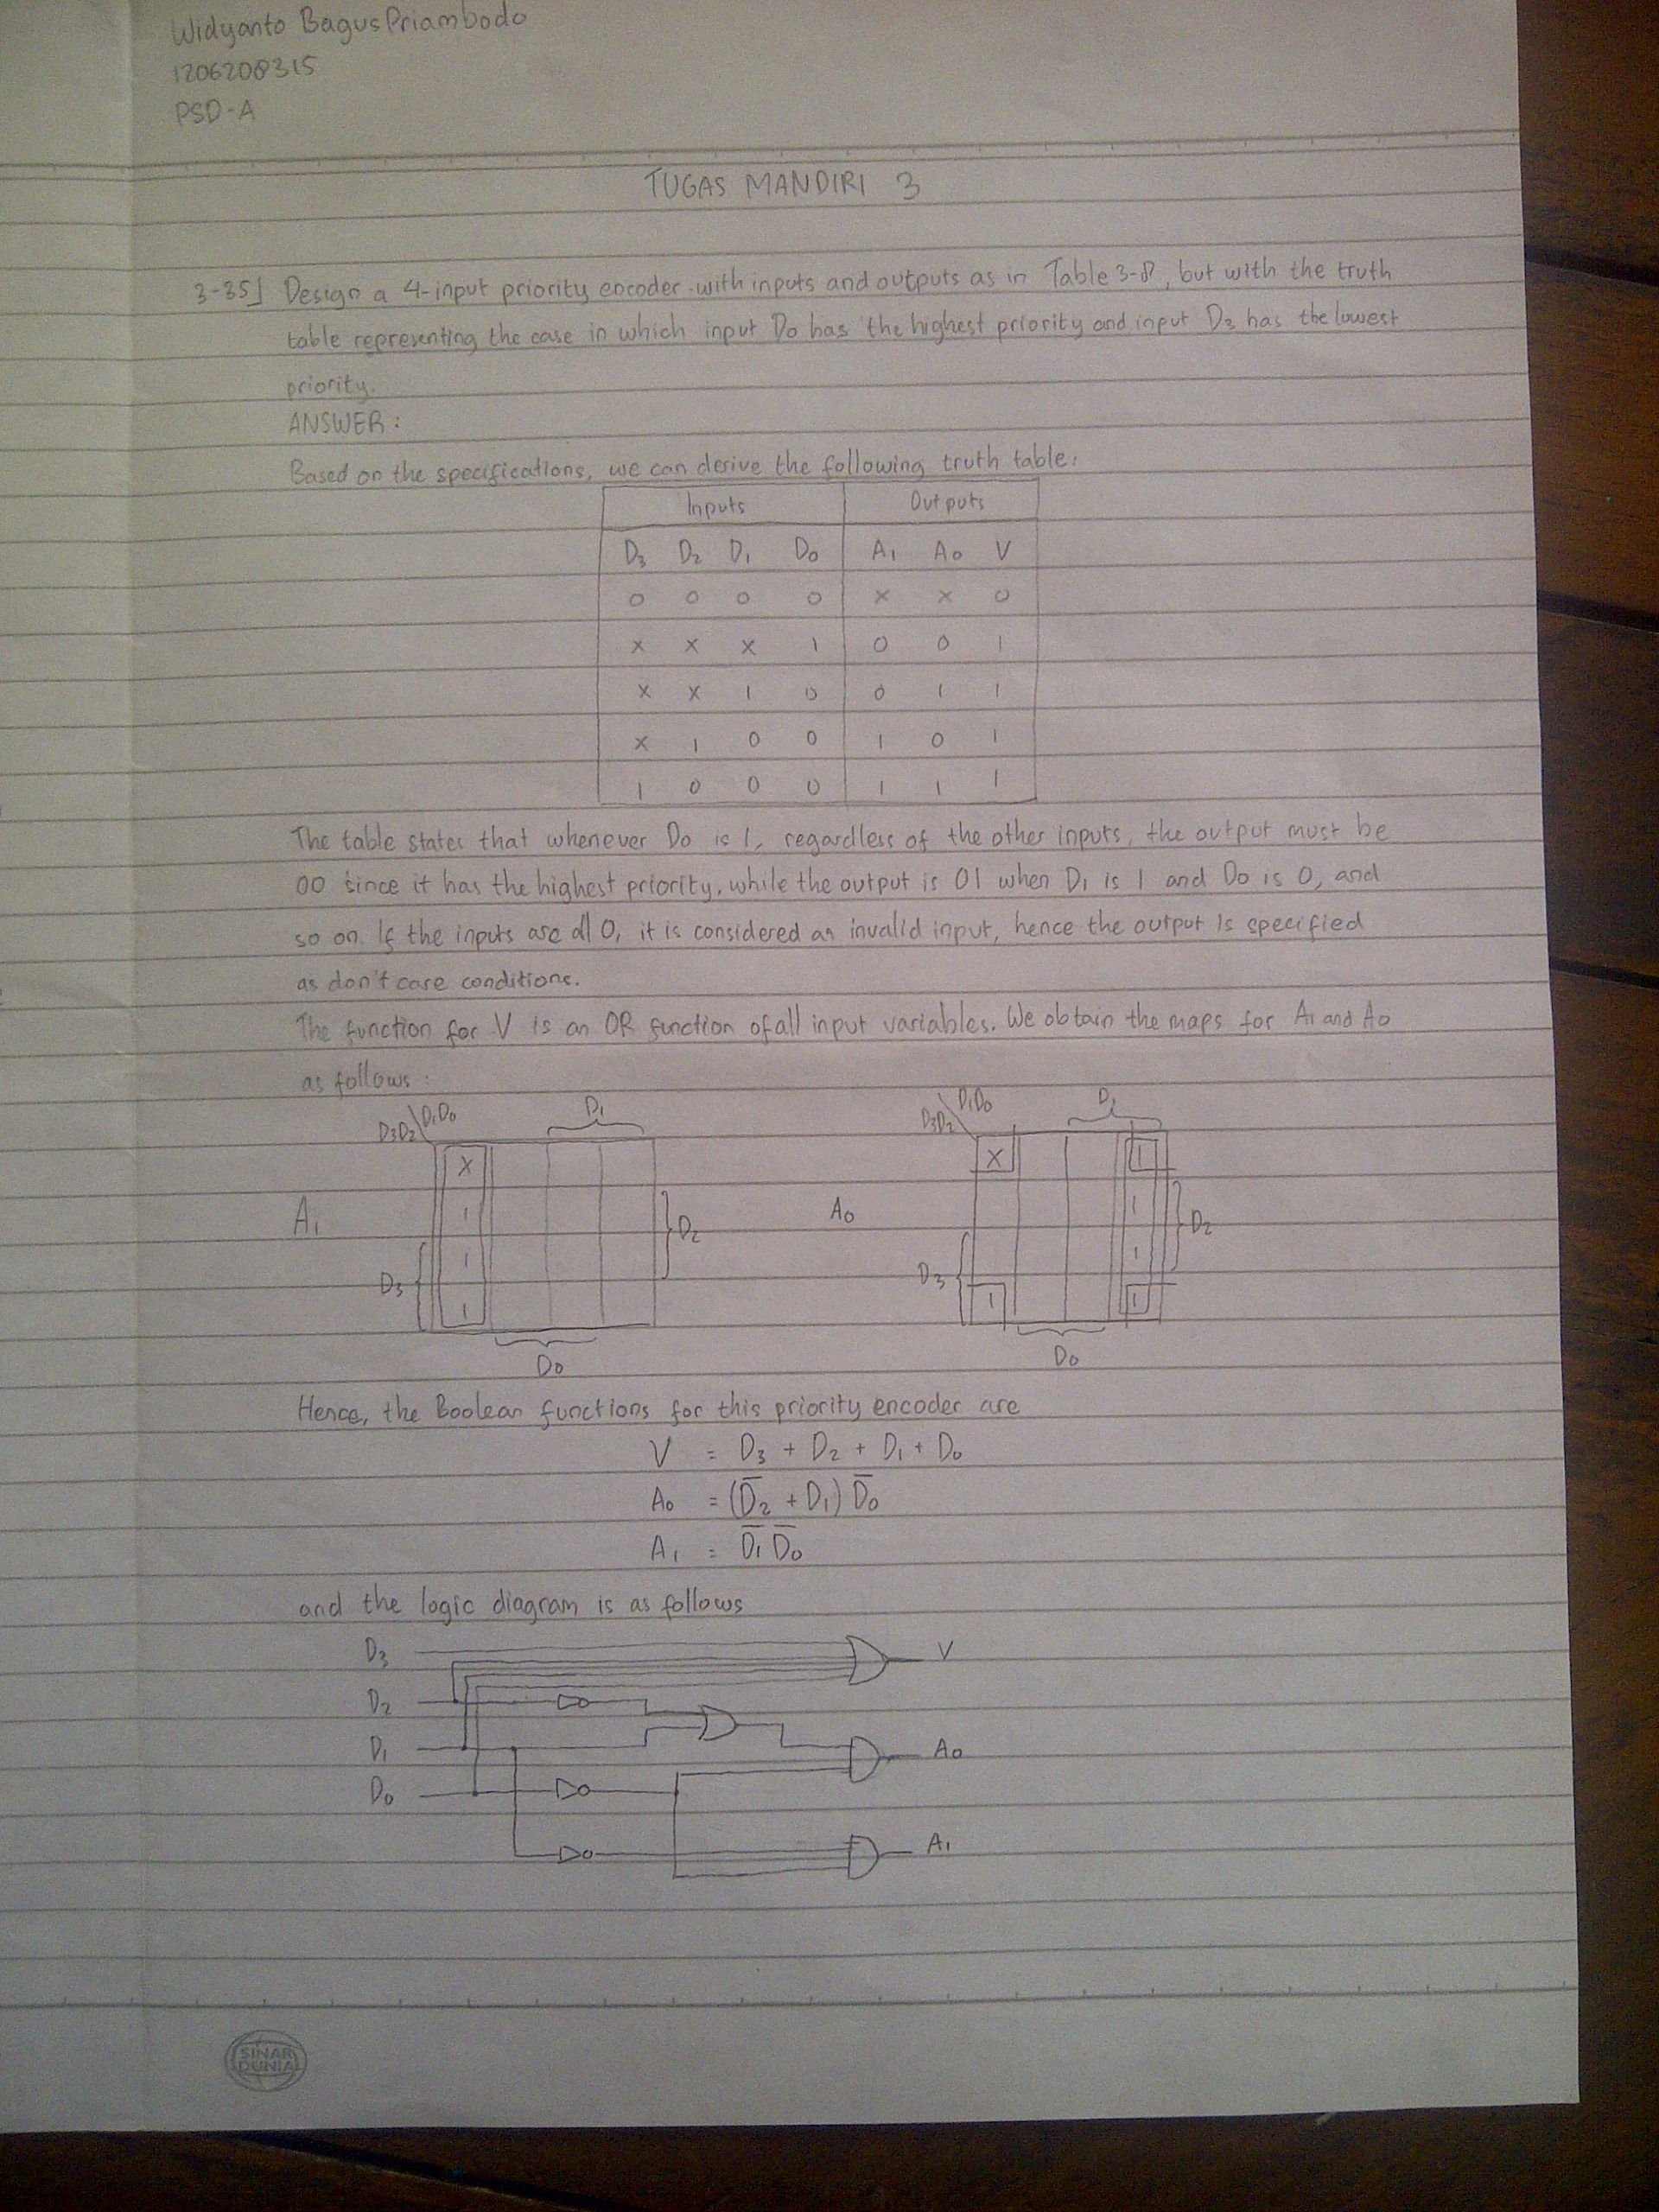 Widyanto Bagus Priambodo
1206208315
PSD-A
TUGAS MANDIRI 3
3-35] Design a 4-input priority encoder with inputs and outputs as in Table 3-8, but with the truth
table representing the case in which input D0 has the highest priority and input D3 has the lowest
priority.
ANSWER:
Based on the specifications, we can derive the following truth table:
Inputs Outputs
D3 D2 D1 D0 A1 A0 V
0 0 0 0 X X 0
X X X 1 0 0 1
X X 1 0 0 1 1
X 1 0 0 1 0 1
1 0 0 0 1 1 1
The table states that whenever D0 is 1, regardless of the other inputs, the output must be
00 since it has the highest priority, while the output is 01 when D1 is 1 and D0 is 0, and
so on. If the inputs are all 0, it is considered an invalid input, hence the output is specified
as don't care conditions.
The function for V is an OR function of all input variables. We obtain the maps for A1 and A0
as follows:
D3D2\D1D0 D1
X
A1 1 D2
D3 1
1
D0
D3D2\D1D0 D1
X 1
A0 1 D2
D3 1
1 1
D0
Hence, the Boolean functions for this priority encoder are
V = D3 + D2 + D1 + D0
A0 = (D̅2 + D1) D̅0
A1 = D̅1 D̅0
and the logic diagram is as follows
D3 V
D2
D1 A0
D0
A1
SINAR
DUNIA